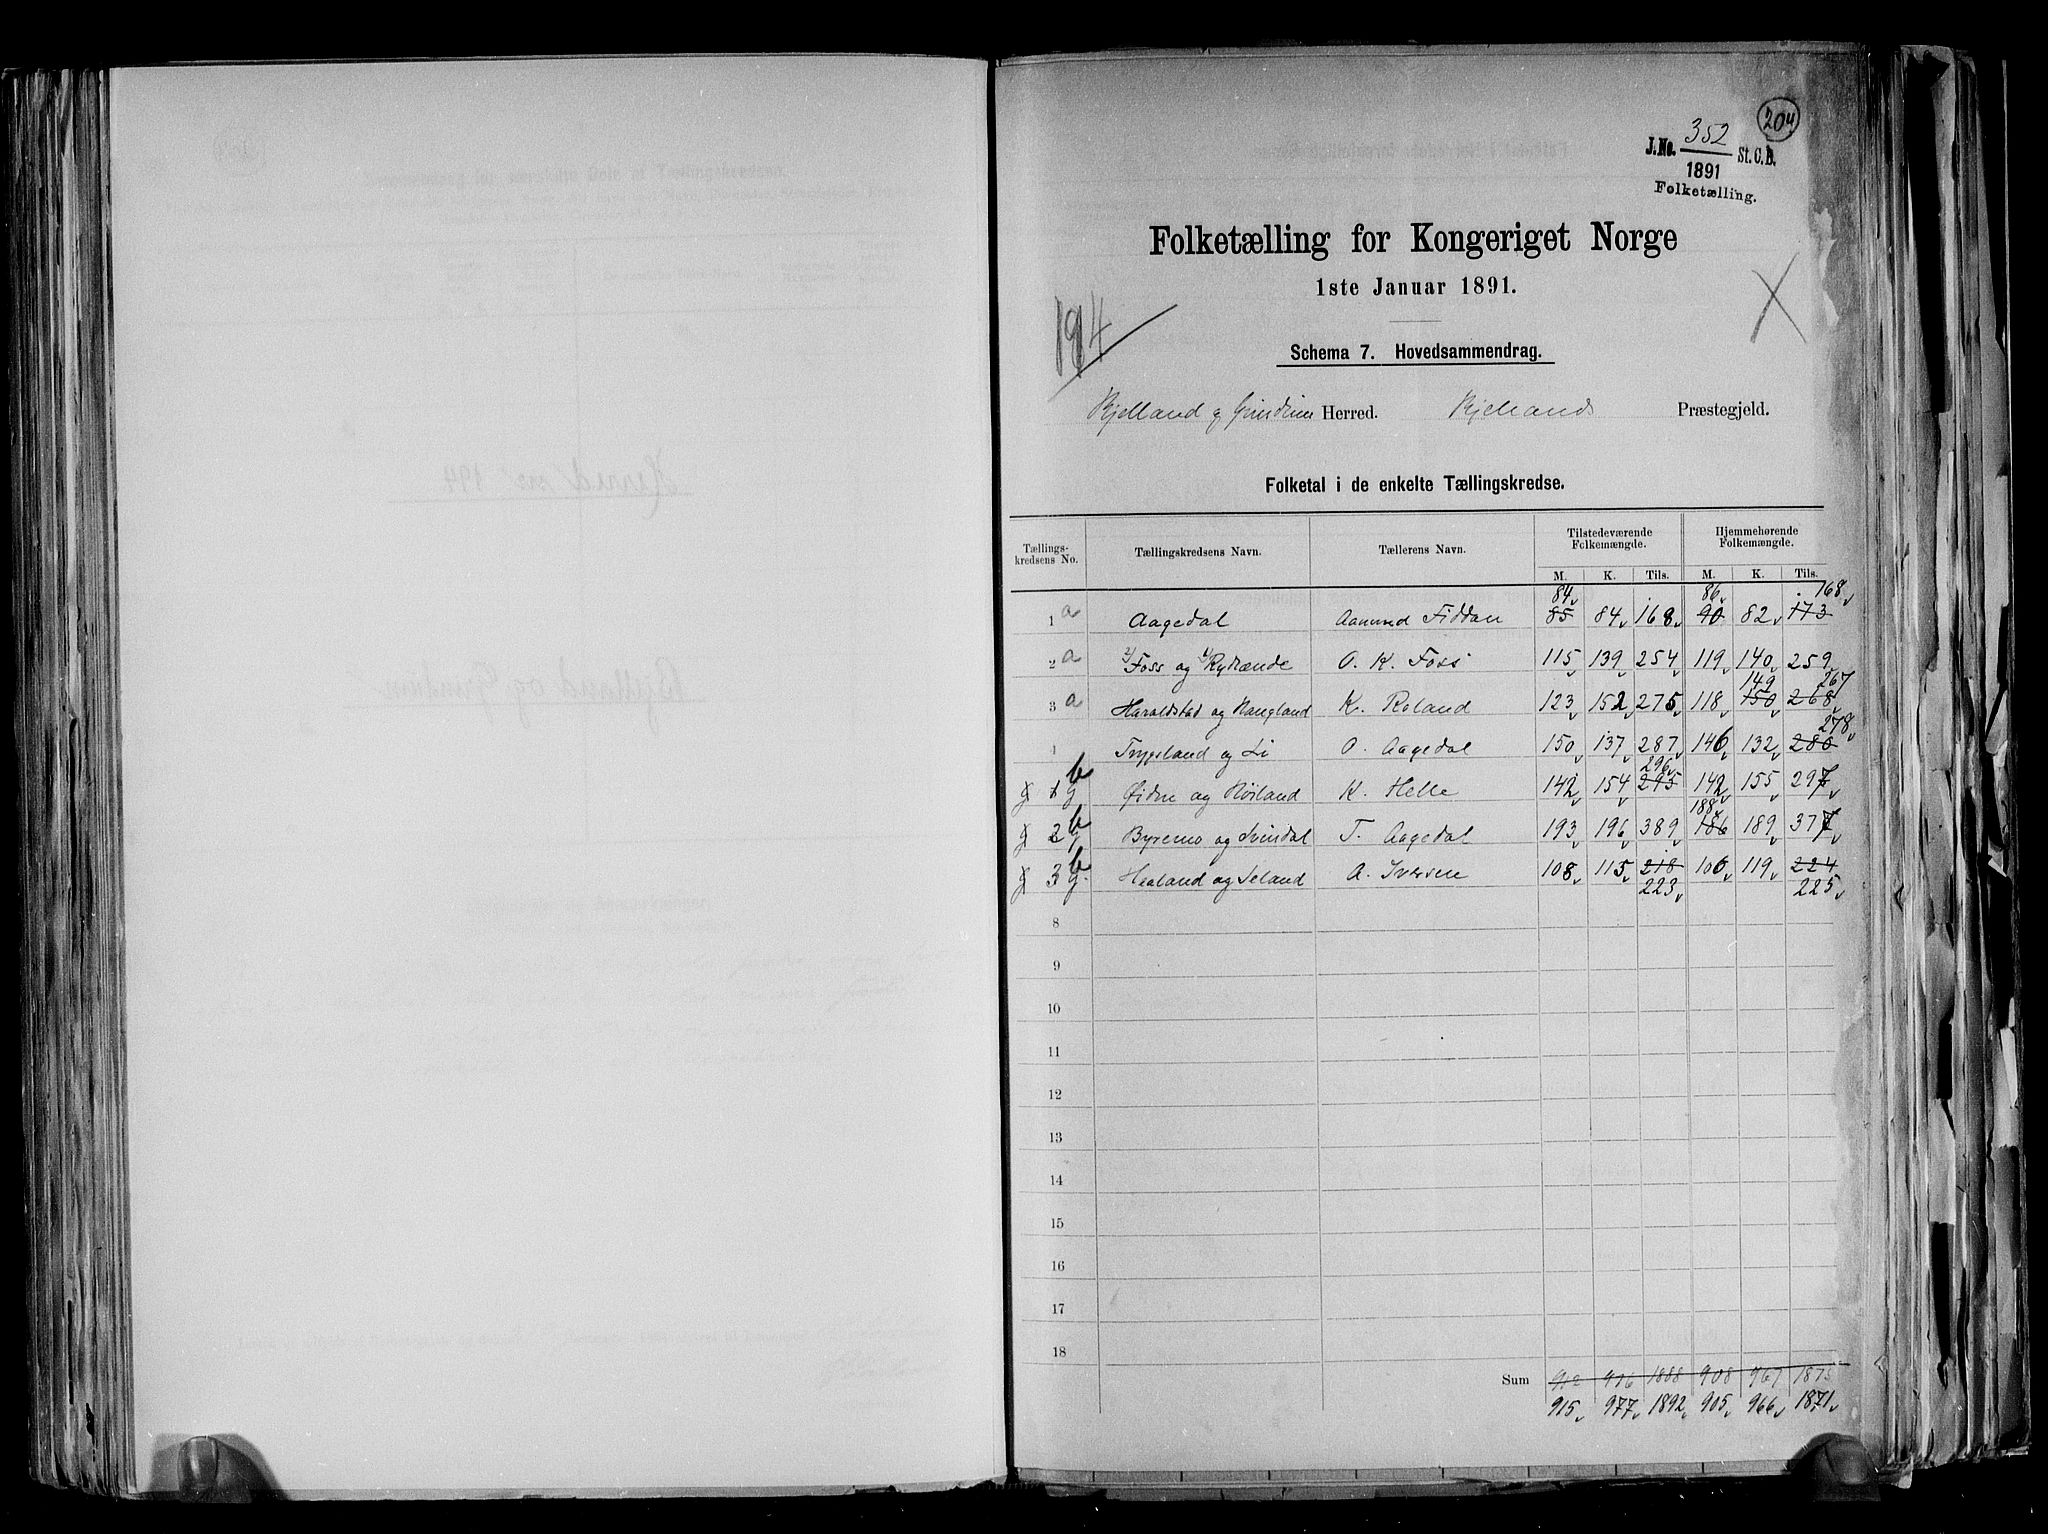 204
J.No. 352 St. C. B.
1891
Folketælling.
Folketælling for Kongeriget Norge
1ste Januar 1891.
194
Schema 7. Hovedsammendrag.
Bjelland og Grindum Herred. Bjellands Præstegjeld.
Folketal i de enkelte Tællingskredse.
Tællings-kredsens No. Tællingskredsens Navn. Tællerens Navn. Tilstedeværende Folkemængde. Hjemmehørende Folkemængde.
M. K. Tils. M. K. Tils.
84 86 168
1 a Aagedal Aanund Fiddan 85 84 168 90 82 173
2 a 2/ Foss og 1/ Rydlænde O. K. Foss 115 139 254 119 140 259
149 267
3 a Haraldstad og Haugland K. Roland 123 152 275 118 150 268
278
Trygsland og Li O. Aagedal 150 137 287 146 132 280
296
1 b Øidne og Røiland K. Helle 142 154 295 142 155 297
188
2 b Byremo og Svindal T. Aagedal 193 196 389 186 189 377
3 b Heeland og Seland A. Iversen 108 115 218 106 119 224
223 225
8
9
10
11
12
13
14
15
16
17
18
Sum 912 976 1888 908 967 1875
915 977 1892 905 966 1871
Herred no 194
Bjelland og Grindum